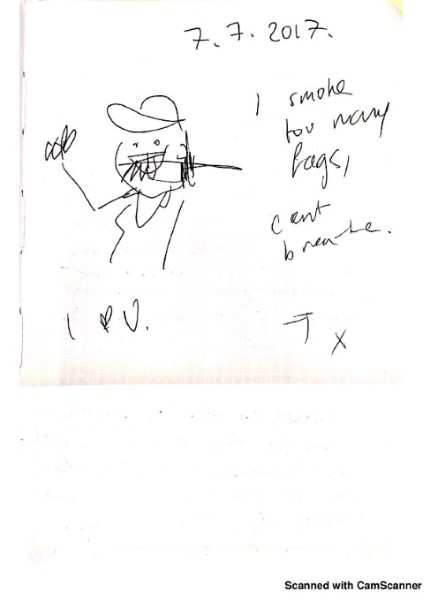 7.7.2017.
I smoke
too many
fags,
cant
breathe.
I ♥ U.
T x
Scanned with CamScanner